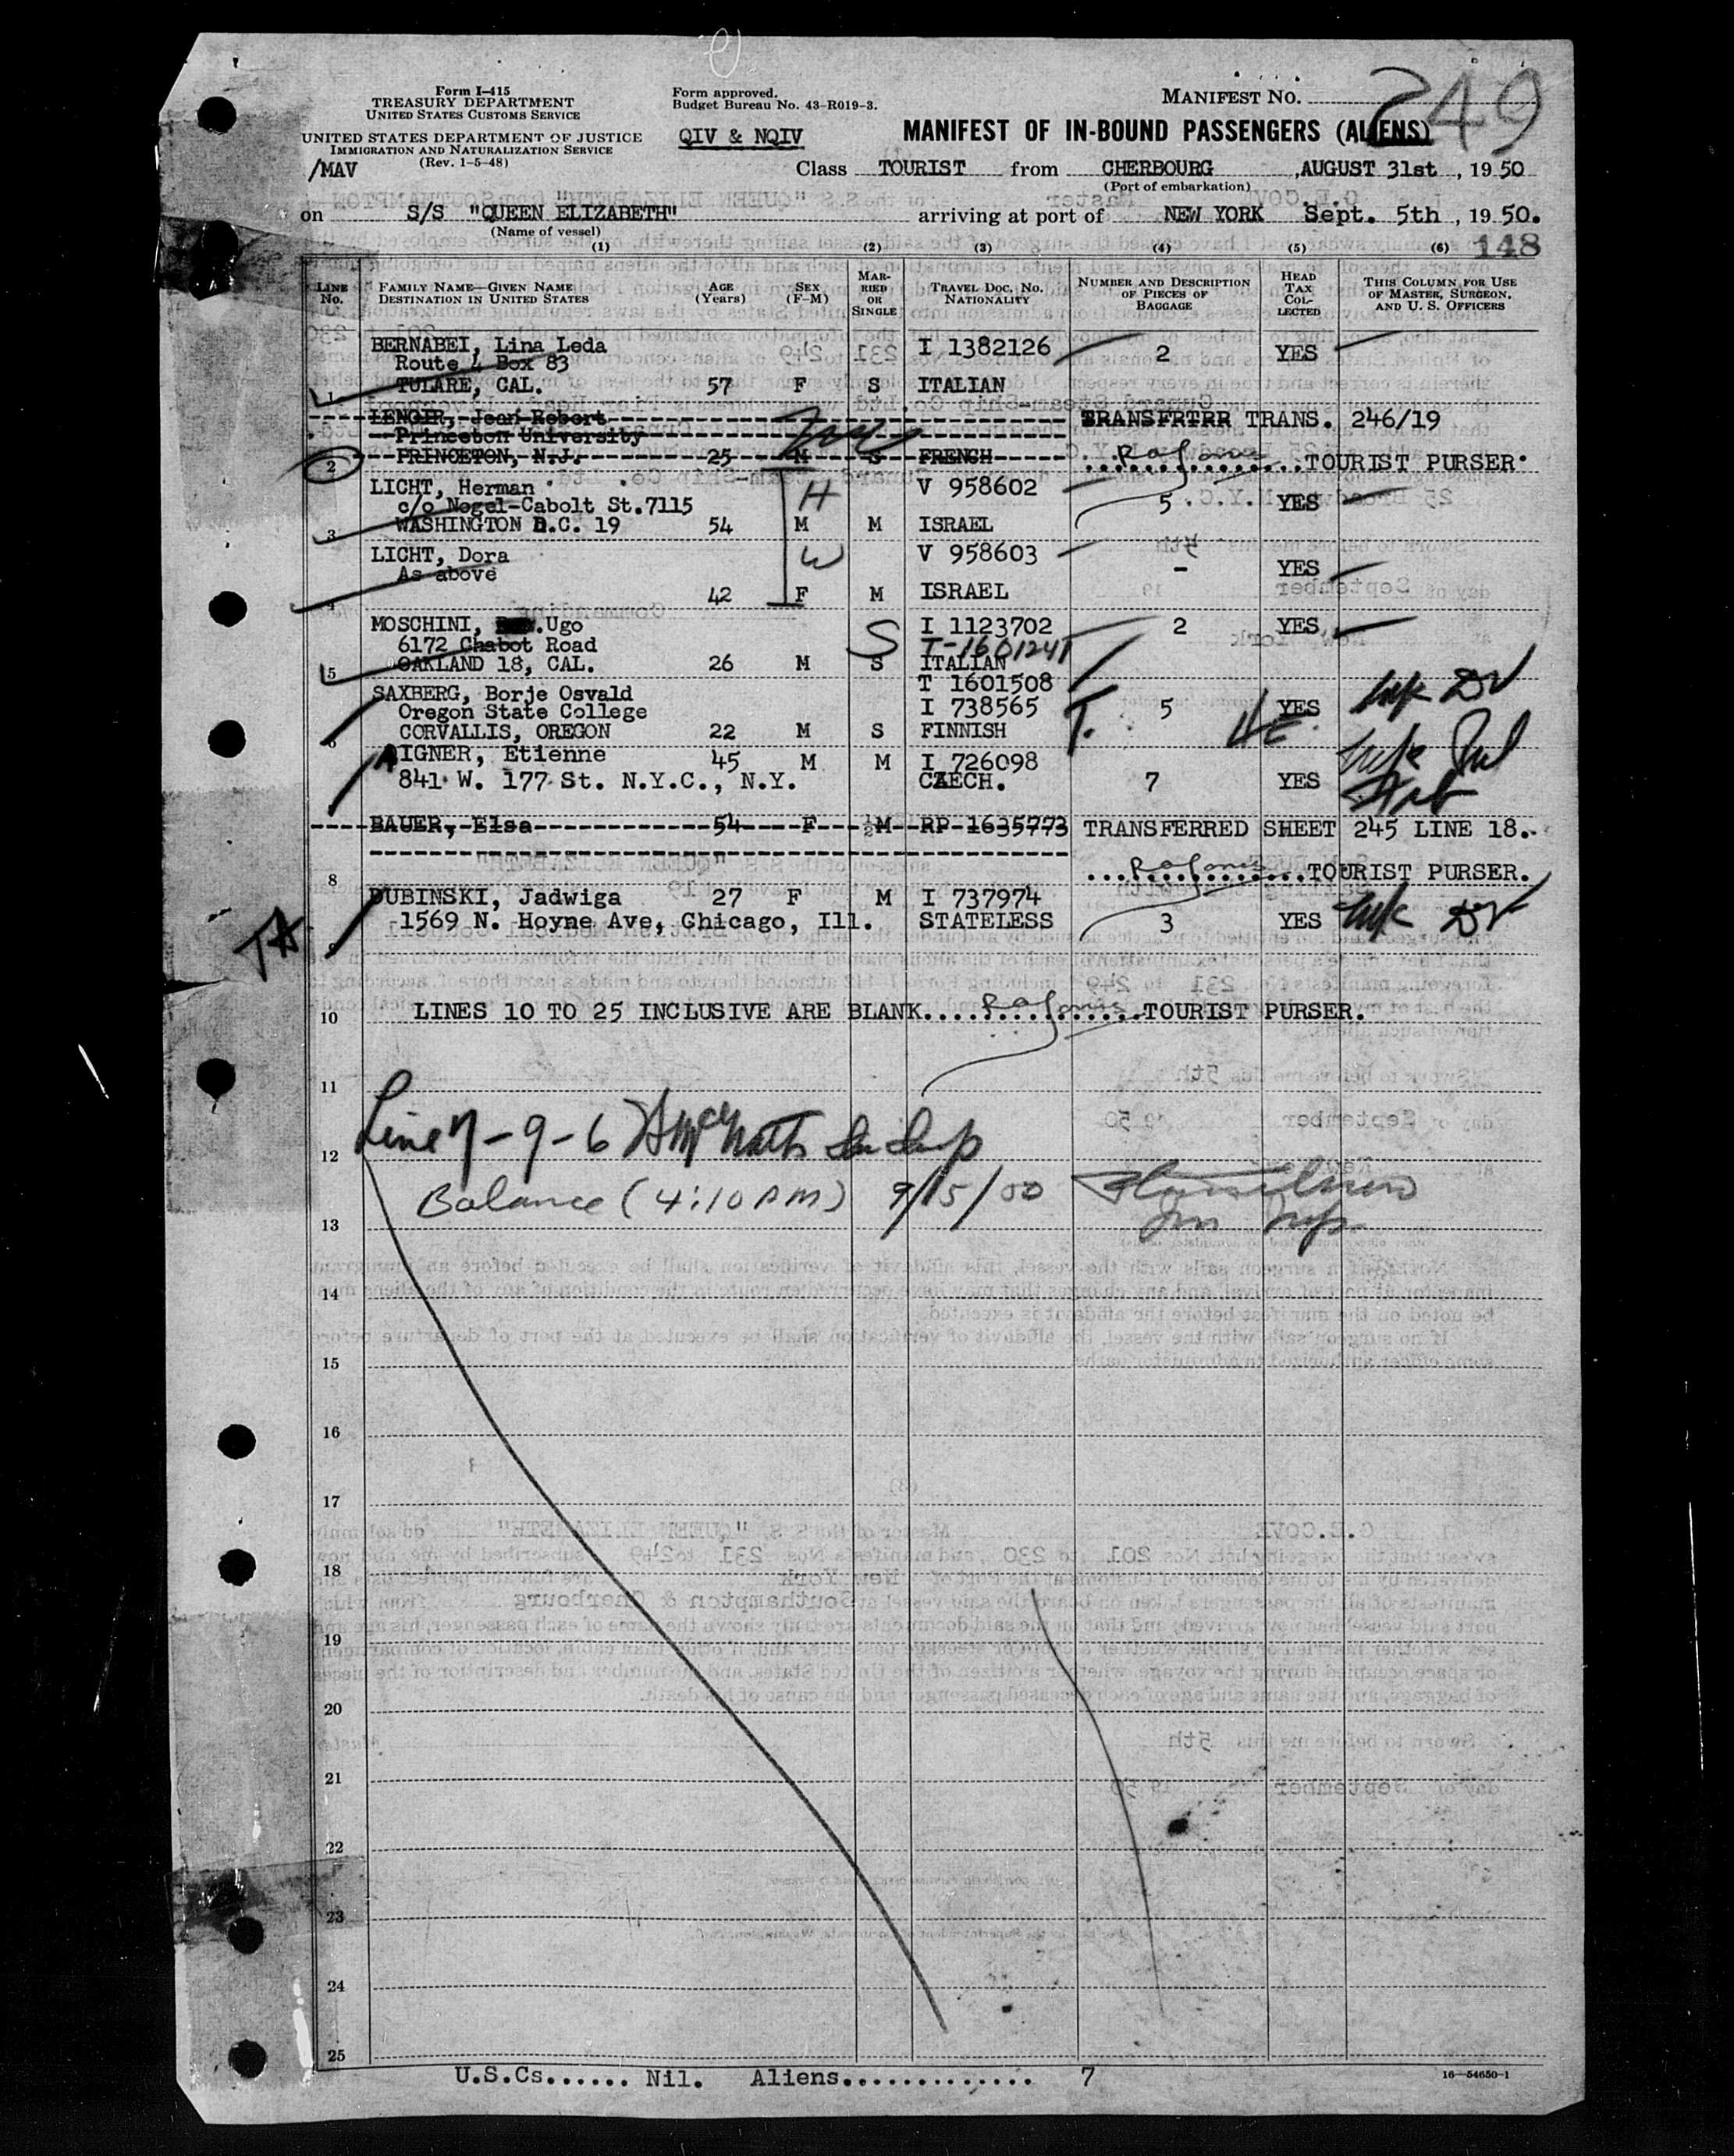 Form I-415
TREASURY DEPARTMENT
UNITED STATES CUSTOMS SERVICE
UNITED STATES DEPARTMENT OF JUSTICE
IMMIGRATION AND NATURALIZATION SERVICE
(Rev. 1-5-48)
/MAV
Form approved.
Budget Bureau No. 43-R019-3.
QIV & NQIV
MANIFEST NO. 249
MANIFEST OF IN-BOUND PASSENGERS (ALIENS)
Class TOURIST from CHERBOURG, AUGUST 31st, 1950
(Port of embarkation)
on S/S "QUEEN ELIZABETH" arriving at port of NEW YORK Sept. 5th, 1950.
(Name of vessel)
(1) (2) (3) (4) (5) (6) 148
LINE No. FAMILY NAME—GIVEN NAME DESTINATION IN UNITED STATES AGE (Years) SEX (F-M) MARRIED OR SINGLE TRAVEL DOC. NO. NATIONALITY NUMBER AND DESCRIPTION OF PIECES OF BAGGAGE HEAD TAX COLLECTED THIS COLUMN FOR USE OF MASTER, SURGEON, AND U. S. OFFICERS
BERNABEI, Lina Leda I 1382126 2 YES
Route 4 Box 83
1 TULARE, CAL. 57 F S ITALIAN
LENOIR, Jean Robert TRANS. 246/19
Princeton University
2 PRINCETON, N.J. 25 M S FRENCH TOURIST PURSER
LICHT, Herman H V 958602 5 YES
c/o Nogel-Cabolt St.7115
3 WASHINGTON D.C. 19 54 M M ISRAEL
LICHT, Dora W V 958603 - YES
As above
4 42 F M ISRAEL
MOSCHINI, Ugo S I 1123702 2 YES
6172 Chabot Road T-1601241
5 OAKLAND 18, CAL. 26 M S ITALIAN
T 1601508
SAXBERG, Borje Osvald I 738565 T. 5 YES
Oregon State College
6 CORVALLIS, OREGON 22 M S FINNISH
AIGNER, Etienne 45 M M I 726098
841 W. 177 St. N.Y.C., N.Y. CZECH. 7 YES
BAUER, Elsa 54 F M RP 1635773 TRANSFERRED SHEET 245 LINE 18.
8 TOURIST PURSER.
DUBINSKI, Jadwiga 27 F M I 737974
1569 N. Hoyne Ave, Chicago, Ill. STATELESS 3 YES
9
10 LINES 10 TO 25 INCLUSIVE ARE BLANK TOURIST PURSER.
11
Line 7-9-6
12
Balance (4:10 PM)
13
14
15
16
17
18
19
20
21
22
23
24
25
U.S.Cs...... Nil. Aliens............. 7
16—54650-1